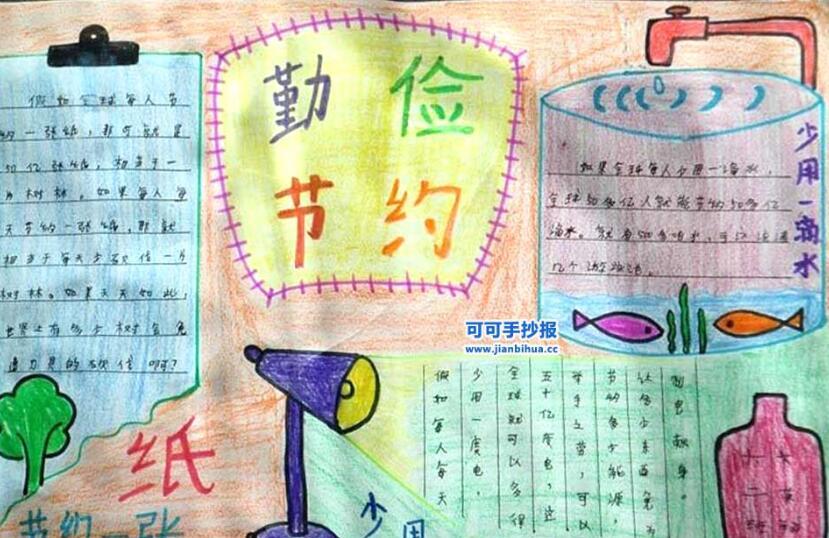 勤俭
节约
假如全球每人节
约一张纸，那可就是
50亿张纸，相当于一
片树林。如果每人每
天节约一张纸，那就
相当于每天少砍伐一片
树林。如果天天如此，
世界上有多少树会免
遭刀具的砍伐啊？
纸
节约一张
少用一滴水
如果全球每人少用一滴水，
全球50多亿人就能节约50多亿
滴水。
可可手抄报
www.jianbihua.cc
少用
假如每人每天
少用一度电，
全球就可以多得
五十亿度电，这
举手之劳，可以
节约多少能源，
让多少东西免为
制电献身。
六二班